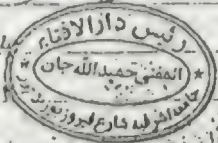 رئیس دارالافتاء
المفتی حمیداللہ جان
جامعہ اشرفیہ شارع فیروزپور لاہور